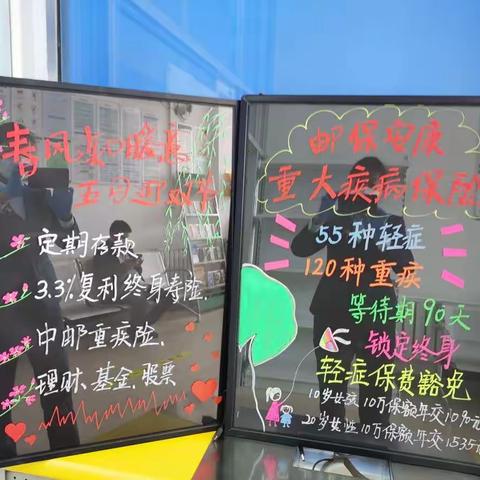 春风
五月迎双节
定期存款
3.3%复利终身寿险.
中邮重疾险.
理财、基金、股票
邮保安康
重大疾病保险
55种轻症
120种重疾
等待期90天
锁定终身
轻症保费豁免
10岁女孩10万保额年交1090元
20岁女性10万保额年交1535